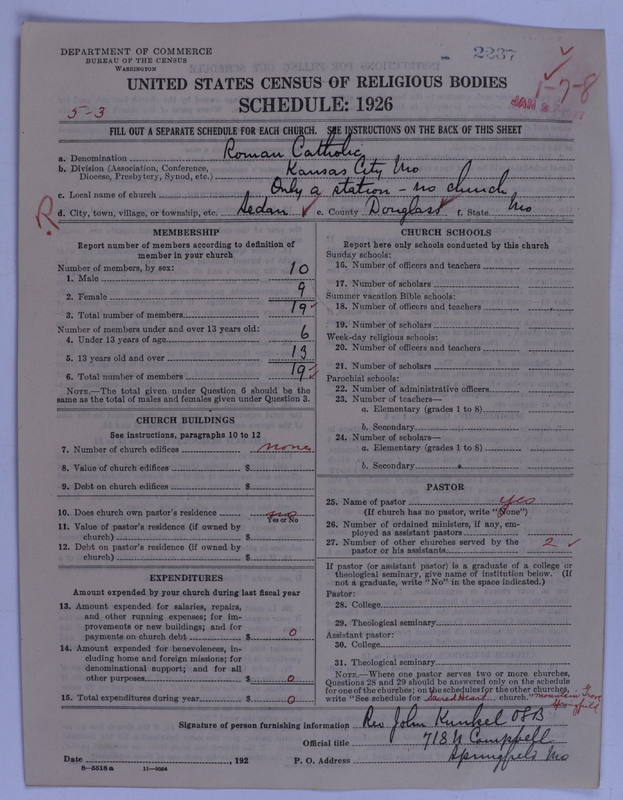 DEPARTMENT OF COMMERCE
BUREAU OF THE CENSUS
WASHINGTON
2337
1-7-8
UNITED STATES CENSUS OF RELIGIOUS BODIES
SCHEDULE: 1926
5-3
FILL OUT A SEPARATE SCHEDULE FOR EACH CHURCH. SEE INSTRUCTIONS ON THE BACK OF THIS SHEET
a. Denomination Roman Catholic
b. Division (Association, Conference, Diocese, Presbytery, Synod, etc.) Kansas City Mo
c. Local name of church Only a station - no church
R
d. City, town, village, or township, etc. Sedan e. County Douglass f. State Mo
MEMBERSHIP
Report number of members according to definition of
member in your church
Number of members, by sex:
1. Male 10
2. Female 9
3. Total number of members 19
Number of members under and over 13 years old:
4. Under 13 years of age 6
5. 13 years old and over 13
6. Total number of members 19
NOTE.—The total given under Question 6 should be the
same as the total of males and females given under Question 3.
CHURCH BUILDINGS
See instructions, paragraphs 10 to 12
7. Number of church edifices none
8. Value of church edifices $
9. Debt on church edifices $
10. Does church own pastor's residence no
Yes or No
11. Value of pastor's residence (if owned by
church) $
12. Debt on pastor's residence (if owned by
church) $
EXPENDITURES
Amount expended by your church during last fiscal year
13. Amount expended for salaries, repairs,
and other running expenses; for im-
provements or new buildings; and for
payments on church debt $ 0
14. Amount expended for benevolences, in-
cluding home and foreign missions; for
denominational support; and for all
other purposes $ 0
15. Total expenditures during year $ 0
CHURCH SCHOOLS
Report here only schools conducted by this church
Sunday schools:
16. Number of officers and teachers
17. Number of scholars
Summer vacation Bible schools:
18. Number of officers and teachers
19. Number of scholars
Week-day religious schools:
20. Number of officers and teachers
21. Number of scholars
Parochial schools:
22. Number of administrative officers
23. Number of teachers—
a. Elementary (grades 1 to 8)
b. Secondary
24. Number of scholars—
a. Elementary (grades 1 to 8)
b. Secondary
PASTOR
25. Name of pastor yes
(If church has no pastor, write "None")
26. Number of ordained ministers, if any, em-
ployed as assistant pastors
27. Number of other churches served by the
pastor or his assistants 2
If pastor (or assistant pastor) is a graduate of a college or
theological seminary, give name of institution below. (If
not a graduate, write "No" in the space indicated.)
Pastor:
28. College
29. Theological seminary
Assistant pastor:
30. College
31. Theological seminary
NOTE.—Where one pastor serves two or more churches,
Questions 28 and 29 should be answered only on the schedule
for one of the churches; on the schedules for the other churches,
write "See schedule for Sacred Heart church." mountain Grove
Springfield
Signature of person furnishing information Rev John Kunkel OSB
Official title 718 N Campbell
Date , 192 P. O. Address Springfield Mo
8—5518a 11—9034